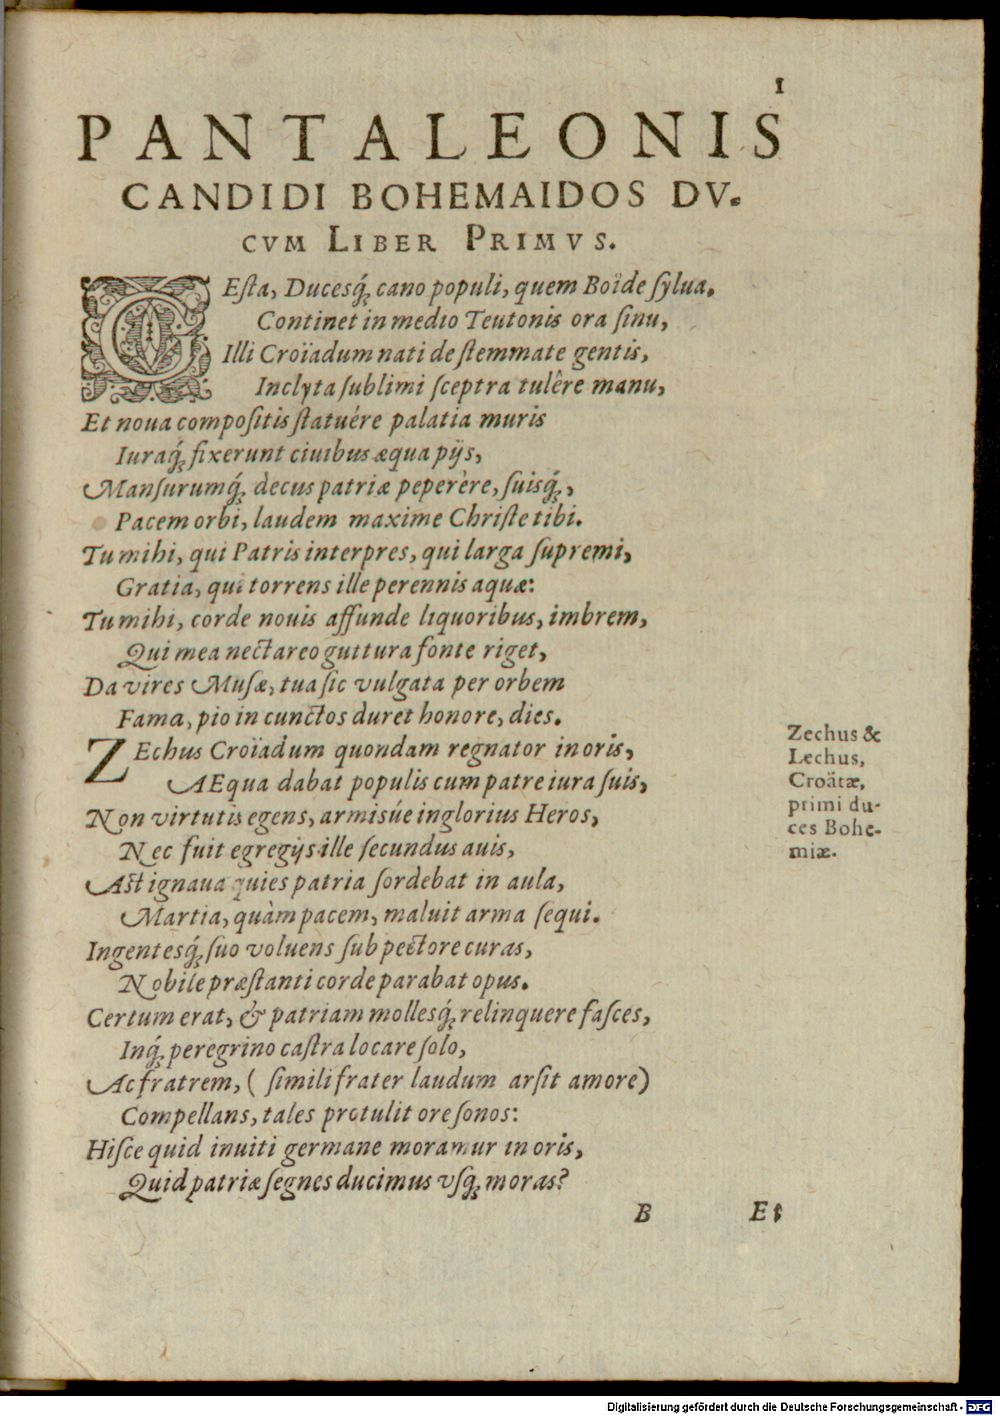 1
PANTALEONIS
CANDIDI BOHEMAIDOS DV.
CVM LIBER PRIMVS.
GEſta, Ducesq́; cano populi, quem Boïde ſylua,
Continet in medio Teutonis ora ſinu,
Illi Croïadum nati de ſtemmate gentis,
Inclyta ſublimi ſceptra tulêre manu,
Et noua compoſitis ſtatuére palatia muris
Iuraq́; fixerunt ciuibus æqua pijs,
Manſurumq́; dècus patriæ peperère, ſuisq́;,
Pacem orbi, laudem maxime Chriſte tibi.
Tu mihi, qui Patris interpres, qui larga ſupremi,
Gratia, qui torrens ille perennis aquæ:
Tu mihi, corde nouis affunde liquoribus, imbrem,
Qui mea nectareo guttura fonte riget,
Da vires Muſæ, tua ſic vulgata per orbem
Fama, pio in cunctos duret honore, dies.
ZEchus Croïadum quondam regnator in oris,
AEqua dabat populis cum patre iura ſuis,
Non virtutis egens, armisúe inglorius Heros,
Nec fuit egregijs ille ſecundus auis,
Aſt ignaua quies patria ſordebat in aula,
Martia, quàm pacem, maluit arma ſequi.
Ingentesq́; ſuo voluens ſub pectore curas,
Nobile præſtanti corde parabat opus.
Certum erat, & patriam mollesq́; relinquere faſces,
Inq́; peregrino caſtra locare ſolo,
Ac fratrem, ( ſimili frater laudum arſit amore)
Compellans, tales protulit ore ſonos:
Hiſce quid inuiti germane moramur in oris,
Quid patriæ ſegnes ducimus vſq; moras?
B Et
Zechus &
Lechus,
Croätæ,
primi du-
ces Bohe-
miæ.
Digitalisierung gefördert durch die Deutsche Forschungsgemeinschaft - DFG